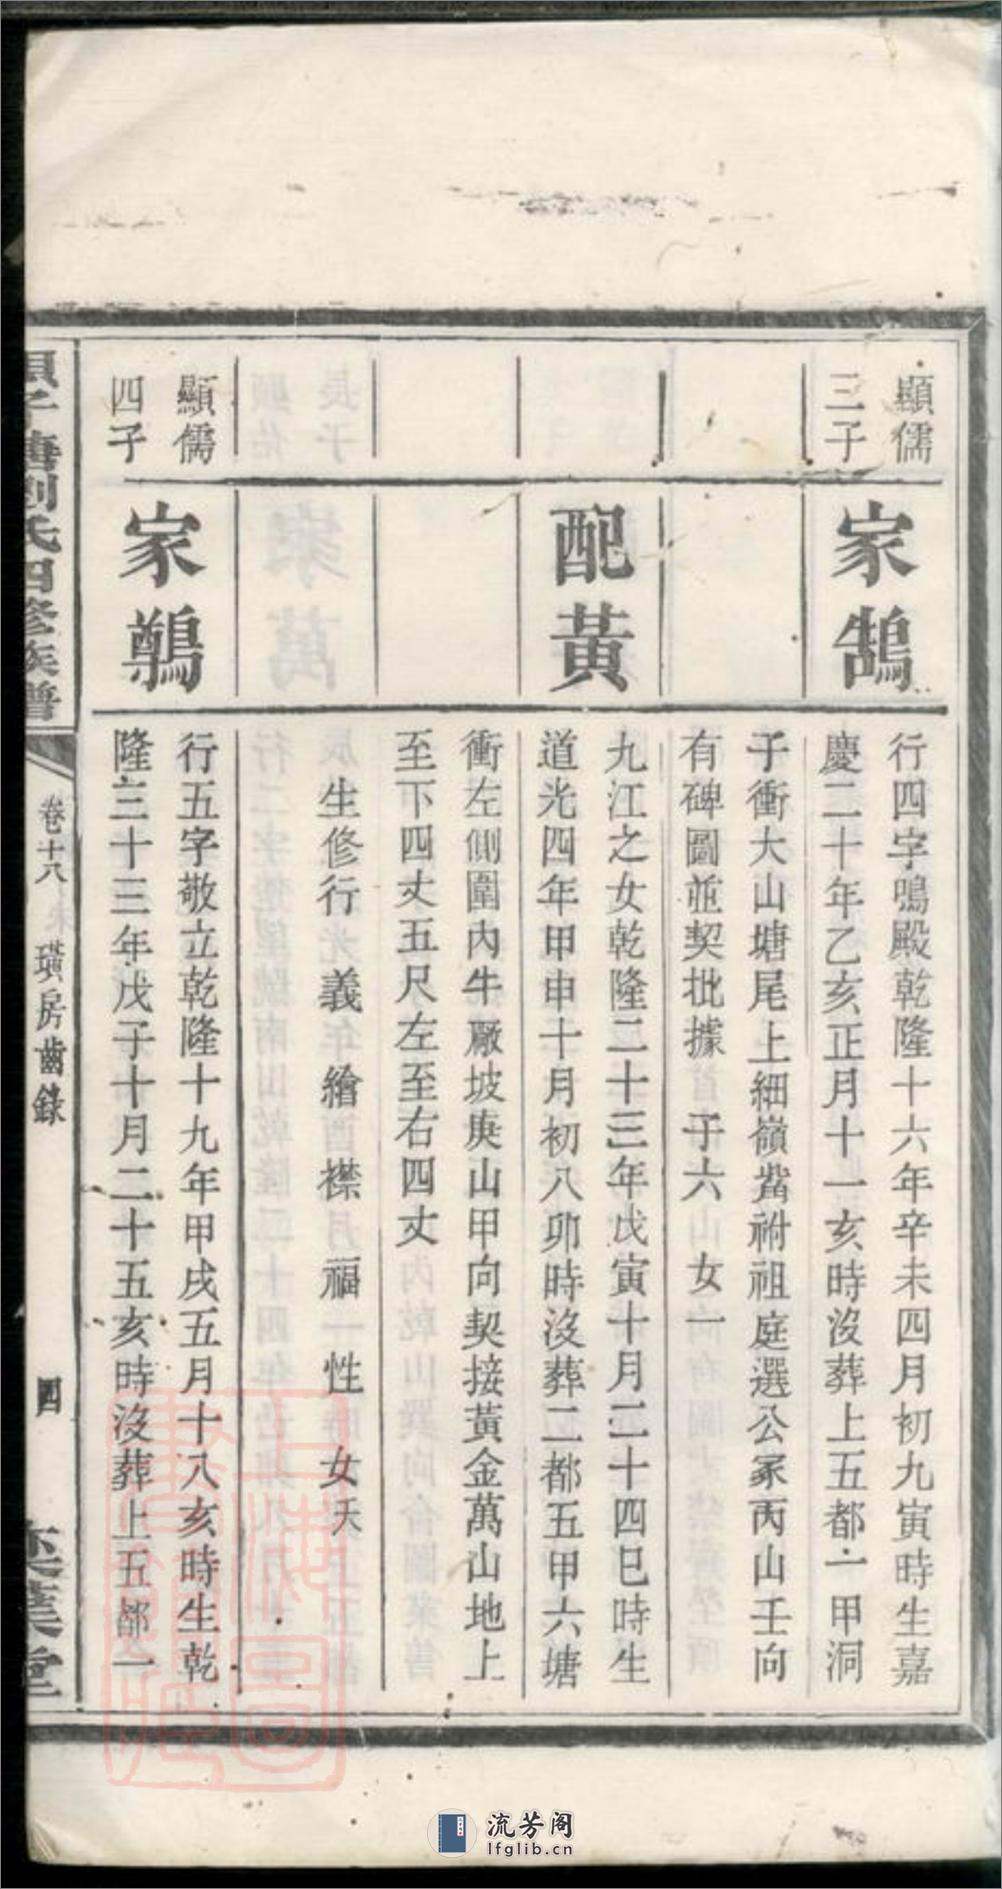 顯儒
三子
家鵠
行四字鳴殿乾隆十六年辛未四月初九寅時生嘉
慶二十年乙亥正月十一亥時沒葬上五都一甲洞
子衝大山塘尾上細嶺嵅祔祖庭選公冢丙山壬向
有碑圖並契批據 子六 女一
配黃
九江之女乾隆二十三年戊寅十月二十四巳時生
道光四年甲申十月初八卯時沒葬二都五甲六塘
衝左側圍內牛廠坡庚山甲向契接黃金萬山地上
至下四丈五尺左至右四丈
生修行 義 繪 襟 福 性 女夭
顯儒
四子
家鷷
行五字敬立乾隆十九年甲戌五月十八亥時生乾
隆三十三年戊子十月二十五亥時沒葬上五都一
子塘劉氏四修族譜
卷十八 璜房齒錄
四
葉堂
流芳阁
lfglib.cn